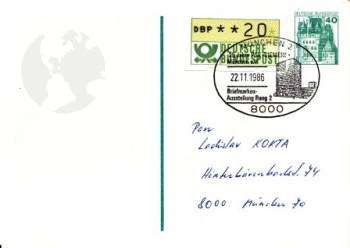 DBP **20*
DEUTSCHE
BUNDESPOST
DEUTSCHE BUNDESPOST
40
MÜNCHEN 2
22.11.1986
Briefmarken-
Ausstellung Rang 2
8000
Ladislav KOKTA
8000 München 70